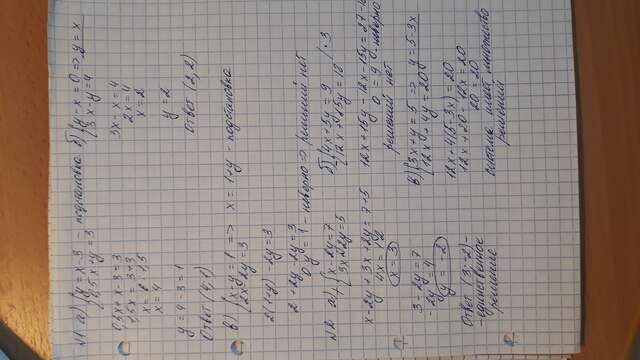 №1 а) { y = x - 3 - подстановка
0,5x + y = 3
0,5x + x - 3 = 3
1,5x = 3 + 3
x = 6 : 1,5
x = 4
y = 4 - 3 = 1
Ответ (4; 1)
б) { y - x = 0 => y = x
3x - y = 4
3x - x = 4
2x = 4
x = 2
y = 2
Ответ (2; 2)
в) { x - y = 1 => x = 1 + y - подстановка
2x - 2y = 3
2(1 + y) - 2y = 3
2 + 2y - 2y = 3
0y = 1 - неверно => решений нет
№2 а) + { x - 2y = 7
3x + 2y = 5
x - 2y + 3x + 2y = 7 + 5
4x = 12
x = 3
3 - 2y = 7
-2y = 4
y = -2
Ответ (3; -2) -
- единственное
решение
б) { 4x + 5y = 9 / · 3
12x + 15y = 18
12x + 15y - 12x - 15y = 27 -
0 = 9 - неверно
решений нет
в) { 3x + y = 5 => y = 5 - 3x
12x + 4y = 20
12x + 4(5 - 3x) = 20
12x + 20 - 12x = 20
20 = 20
система имеет множество
решений